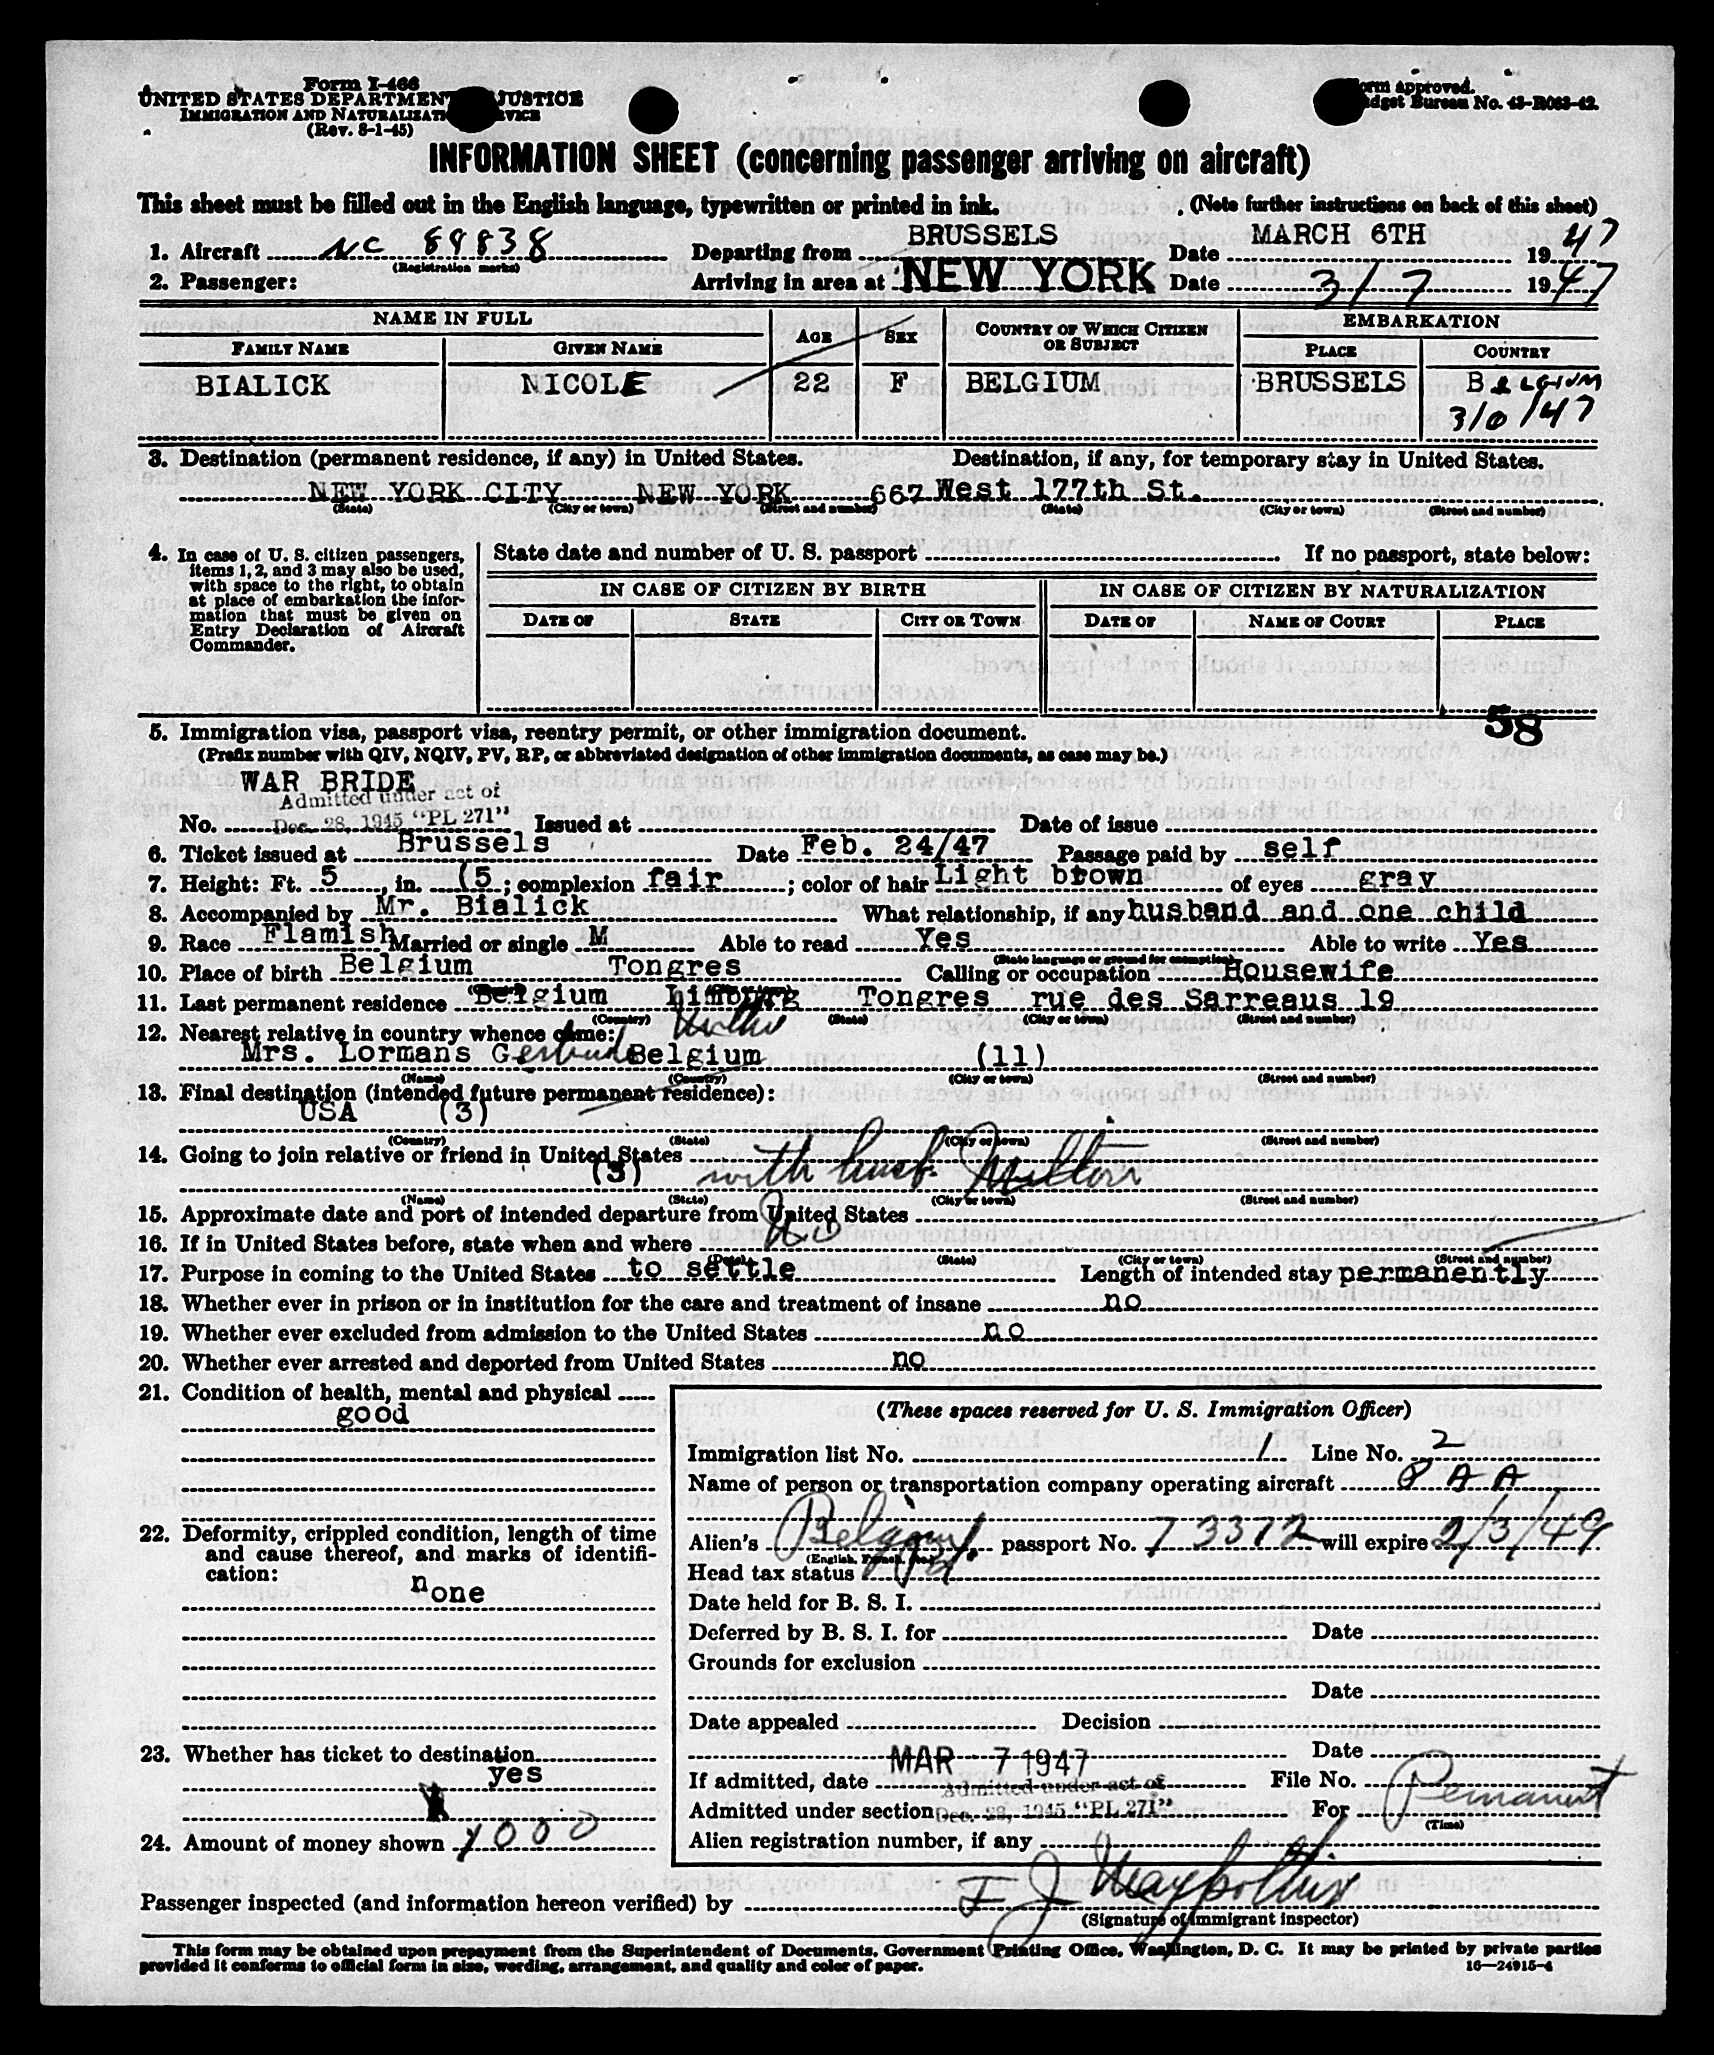 Form I-466
UNITED STATES DEPARTMENT JUSTICE
IMMIGRATION AND NATURALIZATI RVICE
(Rev. 8-1-45)
orm approved.
dget Bureau No. 43-R063-42.
INFORMATION SHEET (concerning passenger arriving on aircraft)
This sheet must be filled out in the English language, typewritten or printed in ink. (Note further instructions on back of this sheet)
1. Aircraft NC 88838 Departing from BRUSSELS Date MARCH 6TH 1947
(Registration marks)
2. Passenger: Arriving in area at NEW YORK Date 3/7 1947
NAME IN FULL AGE SEX COUNTRY OF WHICH CITIZEN OR SUBJECT EMBARKATION
FAMILY NAME GIVEN NAME PLACE COUNTRY
BIALICK NICOLE 22 F BELGIUM BRUSSELS BELGIUM
3/0/47
3. Destination (permanent residence, if any) in United States. Destination, if any, for temporary stay in United States.
NEW YORK CITY NEW YORK 667 West 177th St.
(State) (City or town) (Street and number) (State) (City or town) (Street and number)
4. In case of U. S. citizen passengers, items 1, 2, and 3 may also be used, with space to the right, to obtain at place of embarkation the information that must be given on Entry Declaration of Aircraft Commander.
State date and number of U. S. passport If no passport, state below:
IN CASE OF CITIZEN BY BIRTH IN CASE OF CITIZEN BY NATURALIZATION
DATE OF STATE CITY OR TOWN DATE OF NAME OF COURT PLACE
58
5. Immigration visa, passport visa, reentry permit, or other immigration document.
(Prefix number with QIV, NQIV, PV, RP, or abbreviated designation of other immigration documents, as case may be.)
WAR BRIDE
Admitted under act of
No. Dec. 28, 1945 "PL 271" Issued at Date of issue
6. Ticket issued at Brussels Date Feb. 24/47 Passage paid by self
7. Height: Ft. 5, in. (5; complexion fair; color of hair Light brown of eyes gray
8. Accompanied by Mr. Bialick What relationship, if any husband and one child
9. Race Flamish Married or single M Able to read Yes Able to write Yes
(State language or ground for exemption)
10. Place of birth Belgium Tongres Calling or occupation Housewife
(Country) (City or town)
11. Last permanent residence Belgium Limburg Tongres rue des Sarreaus 19
(Country) (State) (City or town) (Street and number)
12. Nearest relative in country whence came: Mother
Mrs. Lormans Gertrude Belgium (11)
(Name) (Country) (City or town) (Street and number)
13. Final destination (intended future permanent residence):
USA (3)
(Country) (State) (City or town) (Street and number)
14. Going to join relative or friend in United States
(3) with husb. Milton
(Name) (State) (City or town) (Street and number)
15. Approximate date and port of intended departure from United States
16. If in United States before, state when and where No
(Date) (State) (City or town) (Street and number)
17. Purpose in coming to the United States to settle Length of intended stay permanently
18. Whether ever in prison or in institution for the care and treatment of insane no
19. Whether ever excluded from admission to the United States no
20. Whether ever arrested and deported from United States no
21. Condition of health, mental and physical
good
22. Deformity, crippled condition, length of time and cause thereof, and marks of identification:
none
23. Whether has ticket to destination
yes
24. Amount of money shown 1000
(These spaces reserved for U. S. Immigration Officer)
Immigration list No. 1 Line No. 2
Name of person or transportation company operating aircraft P A A
Alien's Belgium passport No. 73372 will expire 2/3/49
(English, French, etc.)
Head tax status
Date held for B. S. I.
Deferred by B. S. I. for Date
Grounds for exclusion
Date
Date appealed Decision
Date
If admitted, date MAR 7 1947 File No.
Admitted under act of
Admitted under section Dec. 28, 1945 "PL 271" For Permanent
(Time)
Alien registration number, if any
Passenger inspected (and information hereon verified) by F J
(Signature of immigrant inspector)
This form may be obtained upon prepayment from the Superintendent of Documents, Government Printing Office, Washington, D. C. It may be printed by private parties
provided it conforms to official form in size, wording, arrangement, and quality and color of paper. 16—24915-4